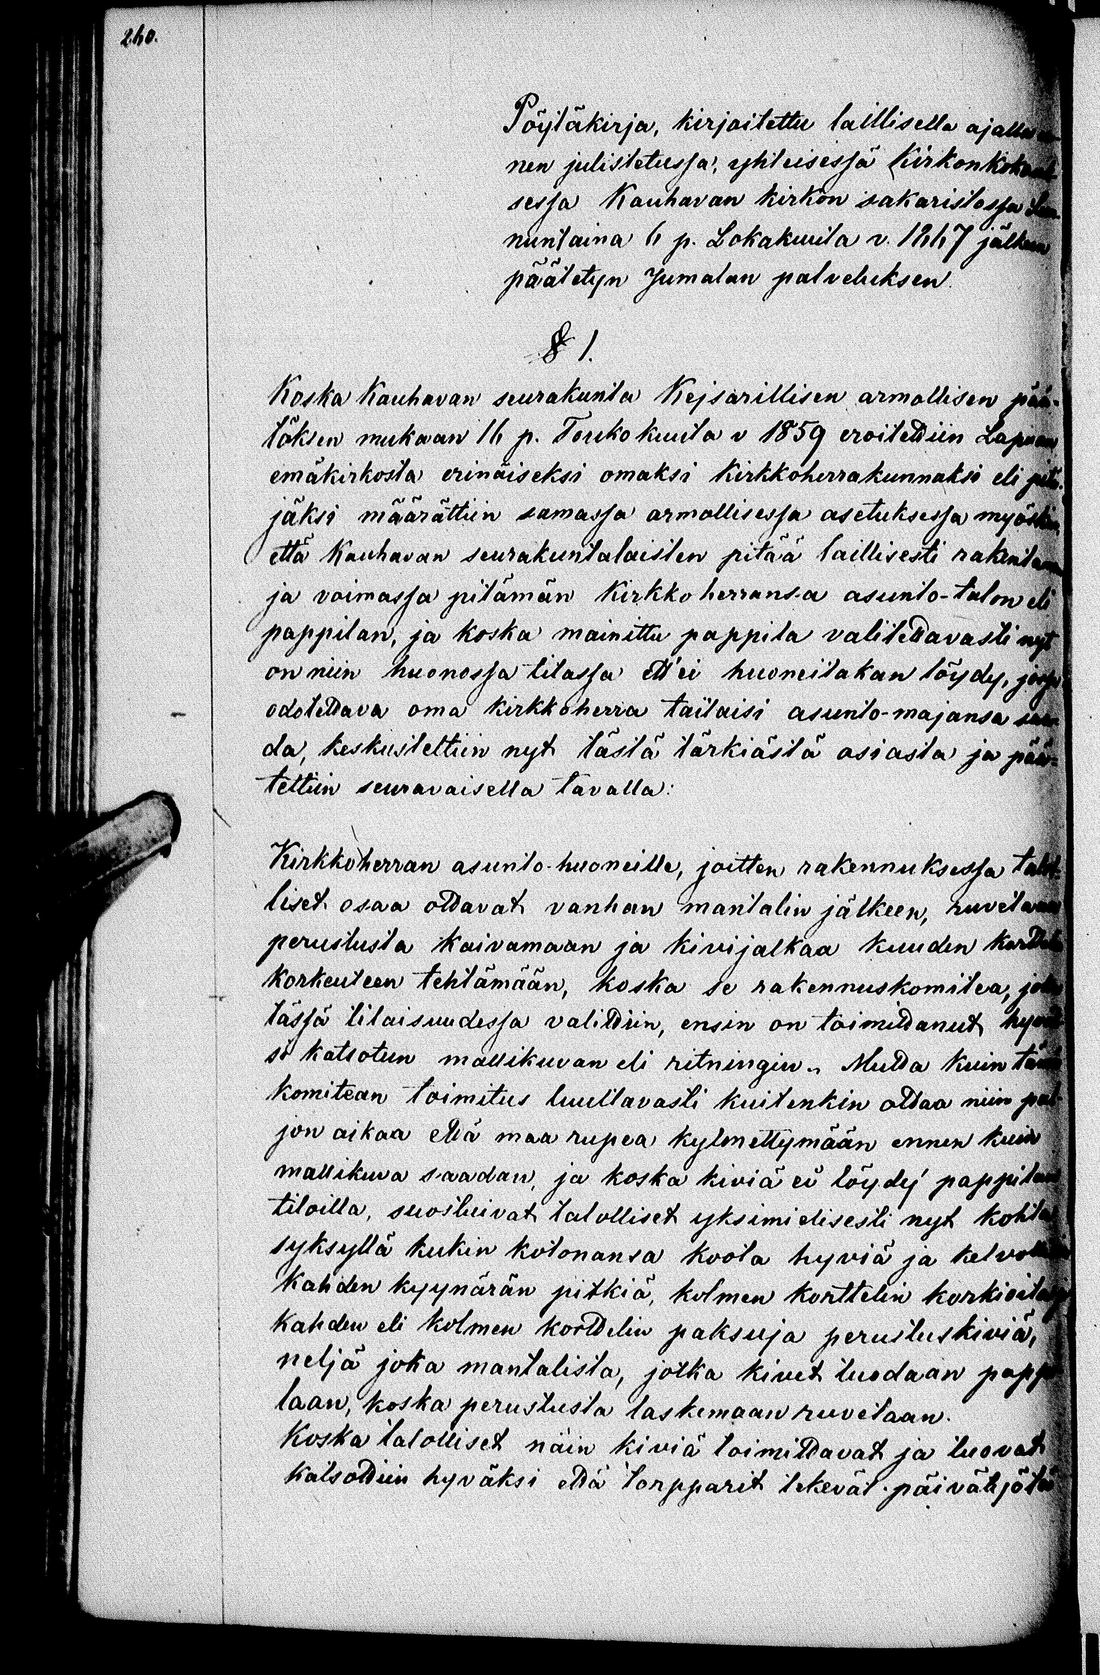 260.
Pöytäkirja, kirjoitettu laillisella ajalla
nen julistetussa, yhteisessä Kirkonkokouk-
sessa Kauhavan kirkon sakaristossa Sun-
nuntaina 6 p. Lokakuuta v. 1867 jälkeen
päätetyn Jumalan palveluksen.
§ 1.
Koska Kauhavan seurakunta Kejsarillisen armollisen pää-
töksen mukaan 16 p. Toukokuuta v 1859 eroitettiin Lapuan
emäkirkosta erinäiseksi omaksi Kirkkoherrakunnaksi eli pitä-
jäksi määrättiin samassa armollisessa asetuksessa myöskin
että Kauhavan seurakuntalaisten pitää laillisesti rakentaman
ja voimassa pitämän Kirkkoherransa asunto-talon eli
pappilan, ja koska mainittu pappila valitettavasti nyt
on niin huonossa tilassa ett'ei huoneitakan löydy, jossa
odotettava oma kirkkoherra taitaisi asunto-majansa saa-
da, keskusteltiin nyt tästä tärkiästä asiasta ja pää-
tettiin seuravaisella tavalla:
Kirkkoherran asunto-huoneille, joitten rakennuksessa talol-
liset osaa ottavat vanhan mantalin jälkeen, ruvetaan
perustusta kaivamaan ja kivijalkaa kuuden korttelin
korkeuteen tehtämään, koska se rakennuskomitea, joka
tässä tilaisuudessa valittiin, ensin on toimittanut hyväk-
si katsotun mallikuvan eli ritningin. Mutta kuin tämä
komitean toimitus luultavasti kuitenkin ottaa niin pal-
jon aikaa että maa rupea kylmettymään ennen kuin
mallikuva saadan, ja koska kiviä ei löydy pappilan
tiloilla, suostuivat talolliset yksimielisesti nyt kohta
syksyllä kukin kotonansa koota hyviä ja kelvollisia
Kahden kyynärän pitkiä, kolmen korttelin korkioita ja
kahden eli kolmen korttelin paksuja perustuskiviä,
neljä joka mantalista, jotka kivet tuodaan pappi-
laan, koska perustusta laskemaan ruvetaan.
Koska talolliset näin kiviä toimittavat ja tuovat
katsottiin hyväksi että torpparit tekevät päivätyötä